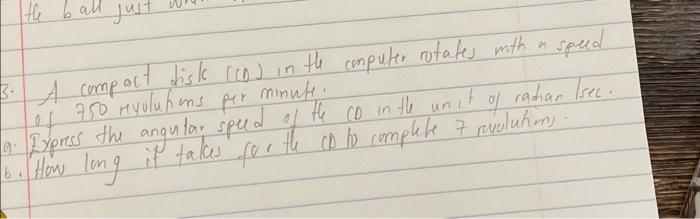 the ball just
3. A compact disk (CD) in the computer rotates with a speed
of 750 revolutions per minute.
a. Express the angular speed of the CD in the unit of radian/sec.
b. How long it takes for the CD to complete 7 revolutions.